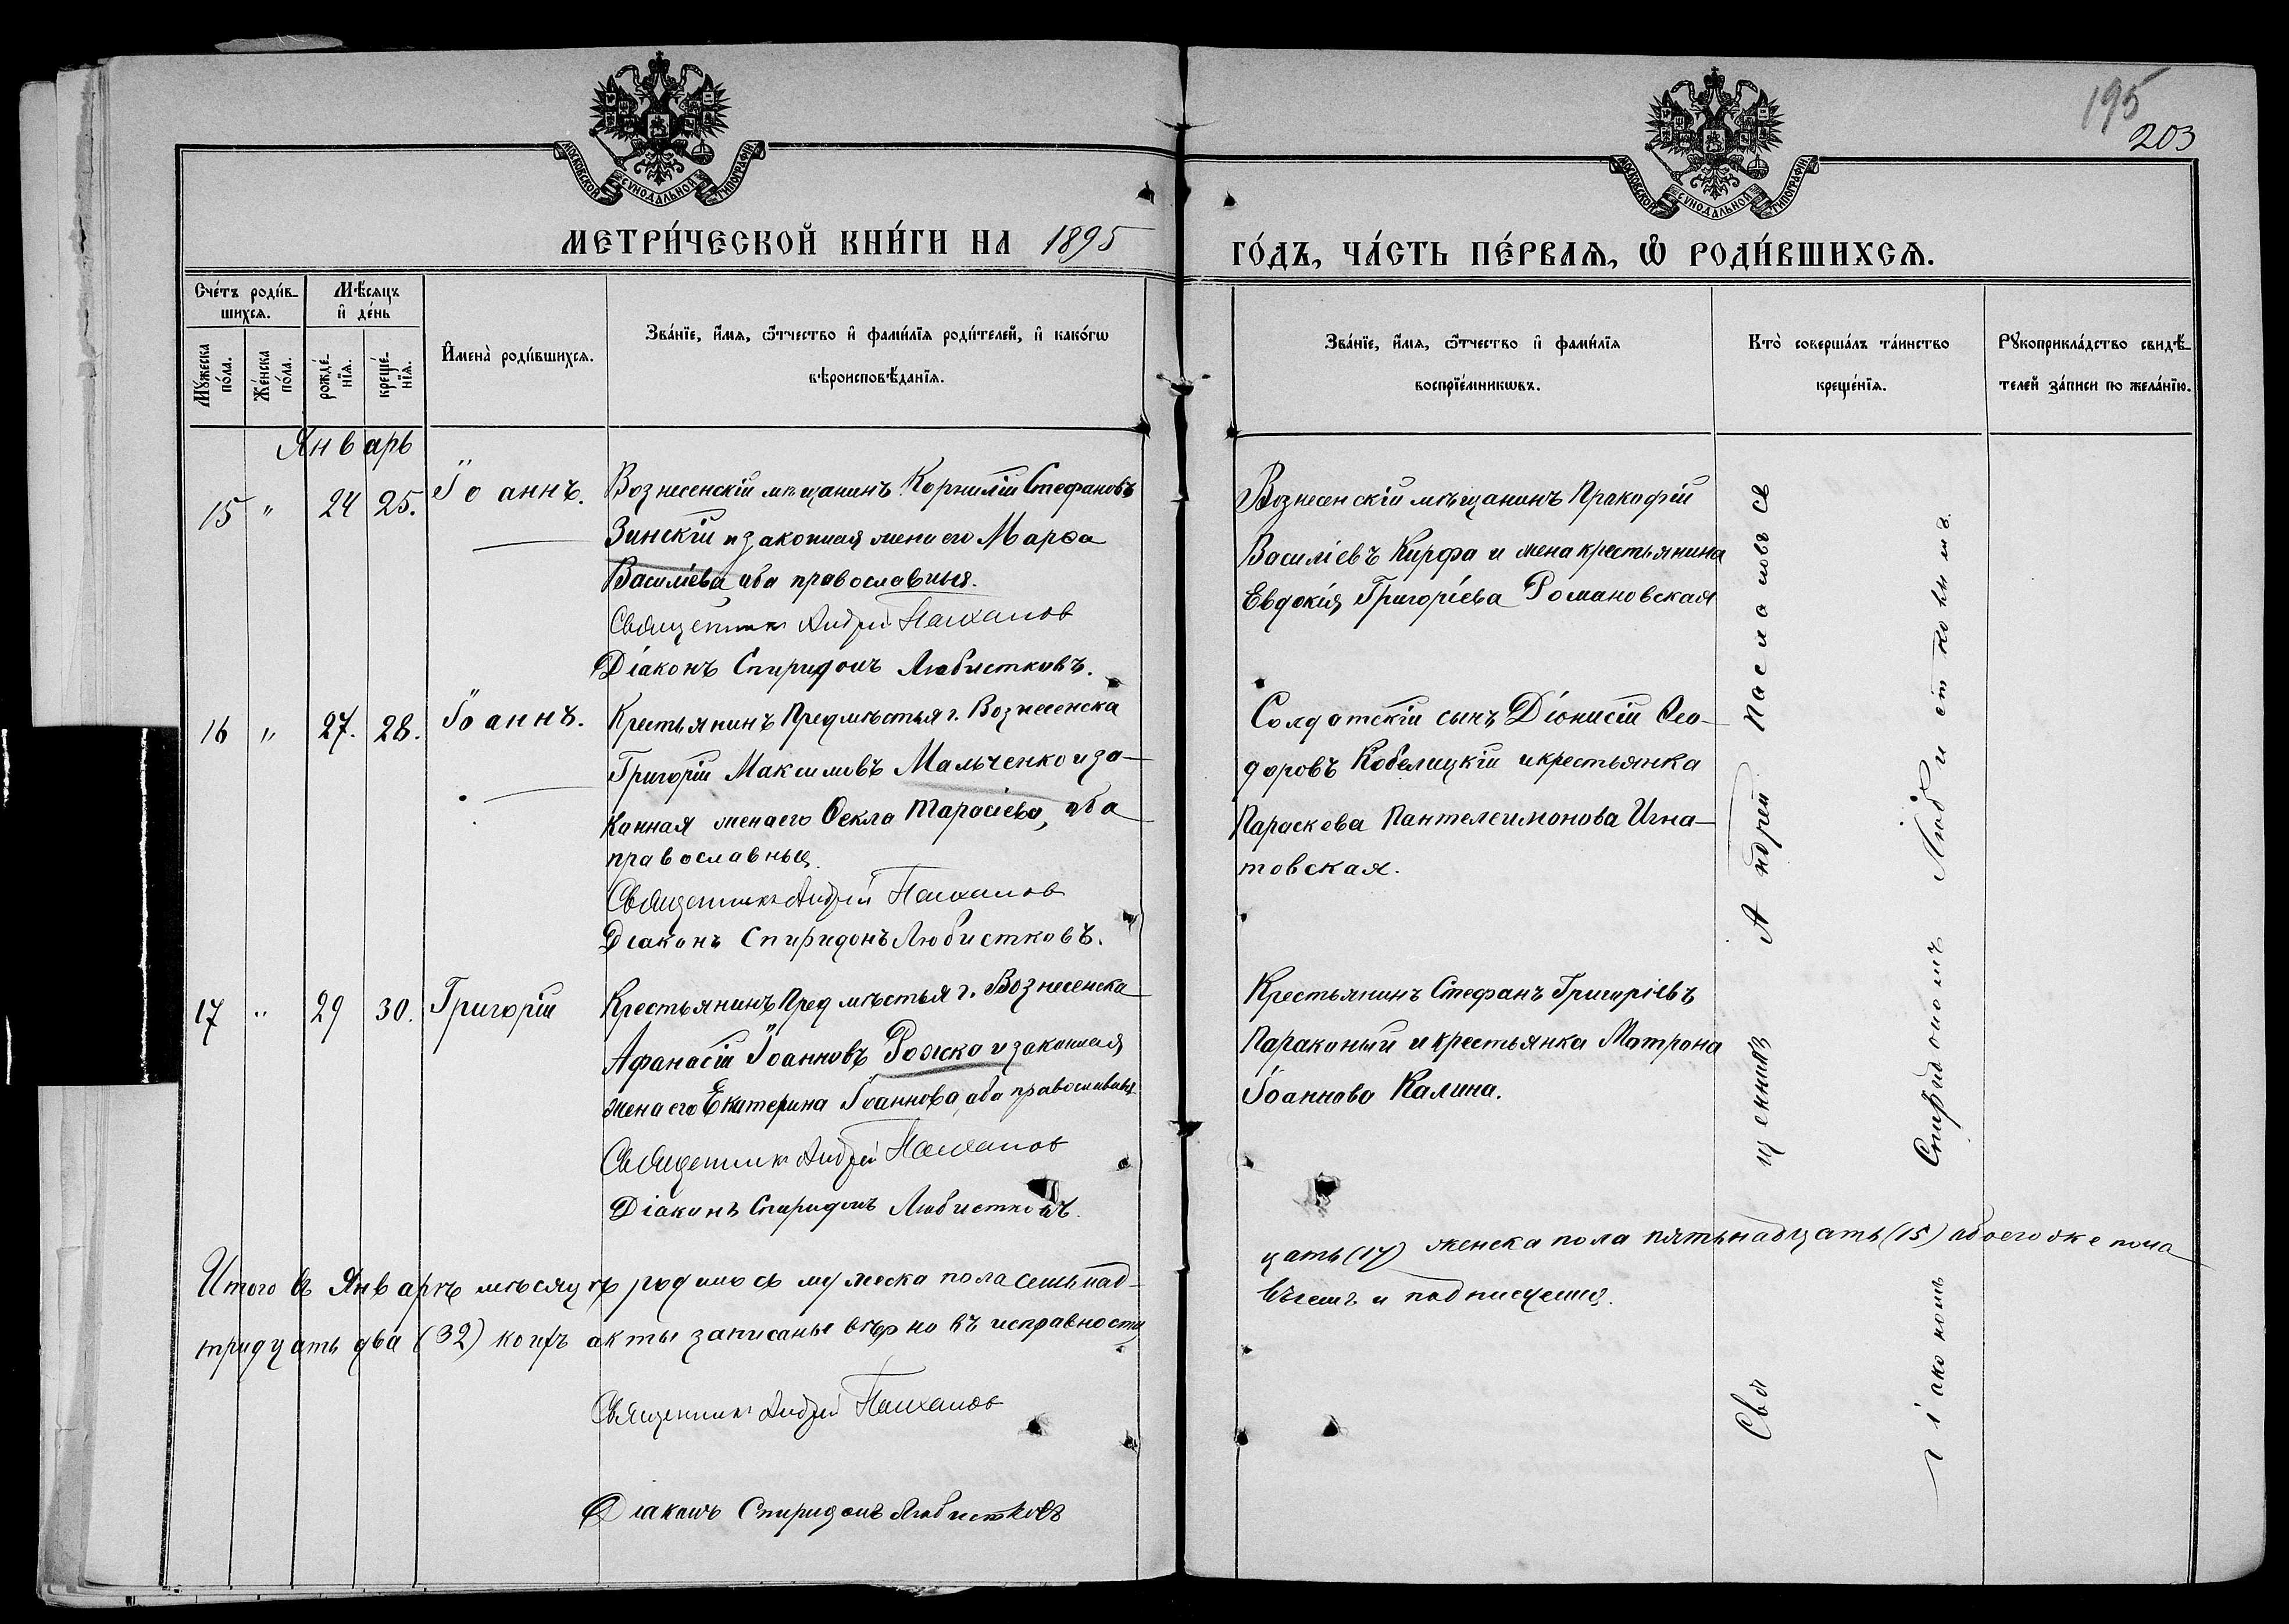 195
203
МОСКОВСКОЙ СУНОДАЛЬНОЙ ТИПОГРАФІИ
МОСКОВСКОЙ СУНОДАЛЬНОЙ ТИПОГРАФІИ
МЕТРИ́ЧЕСКОЙ КНИ́ГИ НА 1895
ГО́ДЪ, ЧА́СТЬ ПЕ́РВАѦ, Ѽ РОДИ́ВШИХСѦ.
Сче́тъ роди́в-
шихсѧ.
Мѣ́сѧцъ
и҆ де́нь
Мꙋ́жеска по́ла.
Же́нска по́ла.
рожде́-
нїѧ.
креще́-
нїѧ.
И҆мена̀ роди́вшихсѧ.
Зва́нїе, и҆́мѧ, ѻ҆́тчество и҆ фами́лїѧ роди́телей, и҆ како́гѡ
вѣроисповѣ́данїѧ.
Зва́нїе, и҆́мѧ, ѻ҆́тчество и҆ фами́лїѧ
воспрїе́мникѡвъ.
Кто̀ соверша́лъ та́инство
креще́нїѧ.
Рꙋкоприкла́дство свидѣ́-
телей за́писи по жела́нїю.
Январь
15 " 24 25. Іоаннъ. Вознесенскій мѣщанинъ Корнилій Стефановъ
Зинскій и законная жена его Марѳа
Василіева, оба православные.
Священникъ Андрей
Діаконъ Спиридонъ Любистковъ.
Вознесенскій мѣщанинъ Прокофій
Василіевъ Кирфа и жена крестьянина
Евдокія Григоріева Романовская
16 " 27. 28. Іоаннъ. Крестьянинъ Предмѣстья г. Вознесенска
Григорій Максимовъ Мальченко и за-
конная жена его Ѳекла Тарасіева, оба
православные.
Священникъ Андрей
Діаконъ Спиридонъ Любистковъ.
Солдатскій сынъ Діонисій Ѳео-
доровъ Кобелицкій и крестьянка
Параскева Пантелеимонова Игна-
товская.
17 " 29 30. Григорій Крестьянинъ Предмѣстья г. Вознесенска
Афанасій Іоанновъ Рожко и законная
жена его Екатерина Іоаннова, оба православные.
Священникъ Андрей
Діаконъ Спиридонъ Любистковъ.
Крестьянинъ Стефанъ Григоріевъ
и крестьянка Матрона
Іоаннова Калина.
Священникъ Андрей
Діакономъ Спиридономъ Любистковымъ.
Итого въ Январѣ мѣсяцѣ родилось мужеска пола семьнад-
цать (17) женска пола пятьнадцать (15) обоего же пола
тридцать два (32) коихъ акты записаны вѣрно въ исправности
и подписуемся.
Священникъ Андрей
Діаконъ Спиридонъ Любистковъ